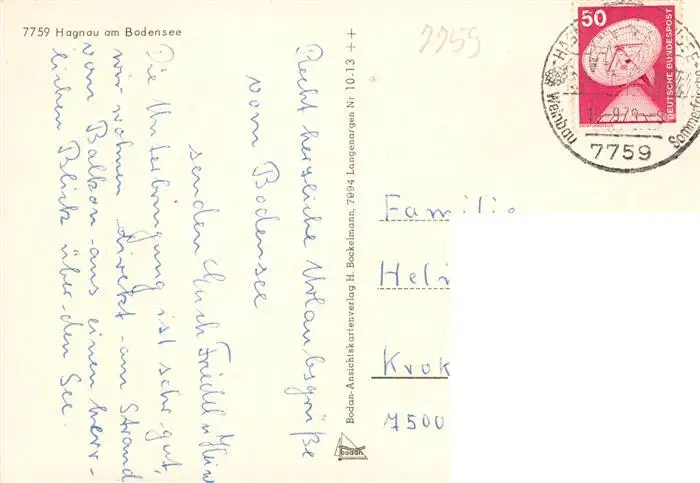 7759 Hagnau am Bodensee
7755
Recht herzliche Urlaubsgrüße
vom Bodensee
senden Euch Friedel u. Heini
Die Unterbringung ist sehr gut,
wir wohnen direkt am Strand
vom Balkon aus einen herr-
lichen Blick über den See.
Bodan-Ansichtskartenverlag H. Bockelmann, 7994 Langenargen Nr 10-13 ++
bodan
50
DEUTSCHE BUNDESPOST
Weinbau
7759
Familie
Helm
Krok
7500